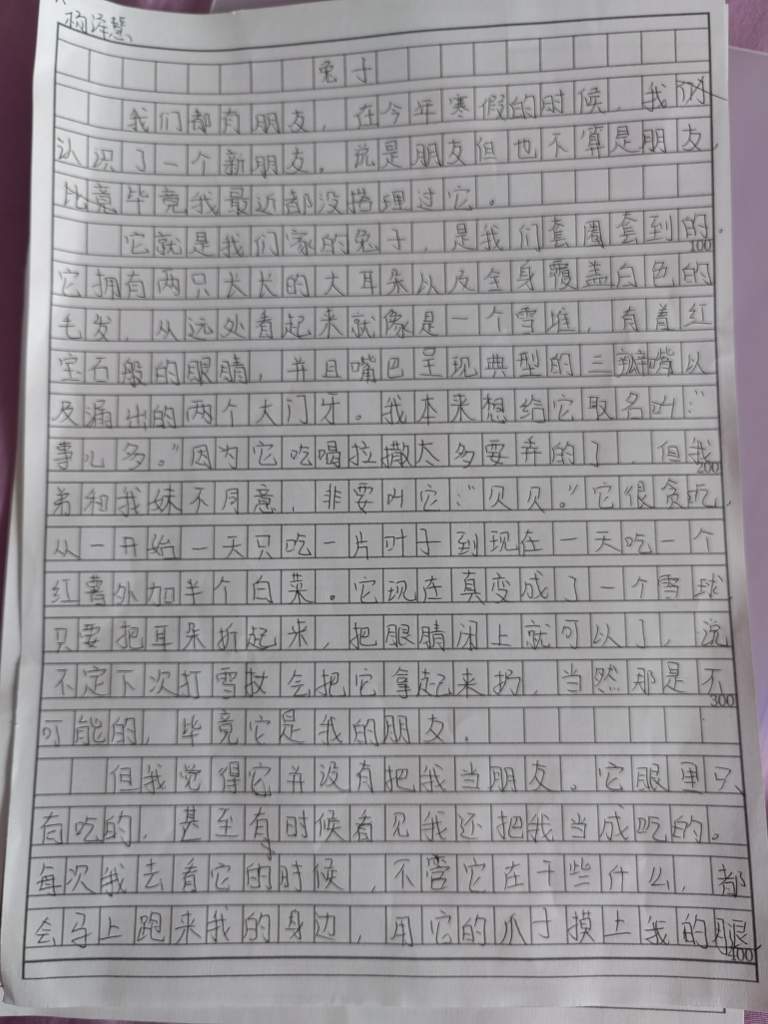 杨泽慧
兔子
我们都有朋友，在今年寒假的时候，我
认识了一个新朋友，说是朋友但也不算是朋友，
毕竟我最近都没搭理过它。
它就是我们家的兔子，是我们套圈套到的。
100
它拥有两只长长的大耳朵以及全身覆盖白色的
毛发，从远处看起来就像是一个雪堆，有着红
宝石般的眼睛，并且嘴巴呈现典型的三瓣嘴以
及漏出的两个大门牙。我本来想给它取名叫：“
事儿多。”因为它吃喝拉撒太多要弄的了，但我
200
弟和我妹不同意，非要叫它：“贝贝。”它很贪吃，
从一开始一天只吃一片叶子到现在一天吃一个
红薯外加半个白菜。它现在真变成了一个雪球
只要把耳朵折起来，把眼睛闭上就可以了，说
不定下次打雪仗会把它拿起来扔，当然那是不
300
可能的，毕竟它是我的朋友。
但我觉得它并没有把我当朋友。它眼里只
有吃的，甚至有时候看见我还把我当成吃的。
每次我去看它的时候，不管它在干些什么，都
会马上跑来我的身边，用它的爪子摸上我的腿
400